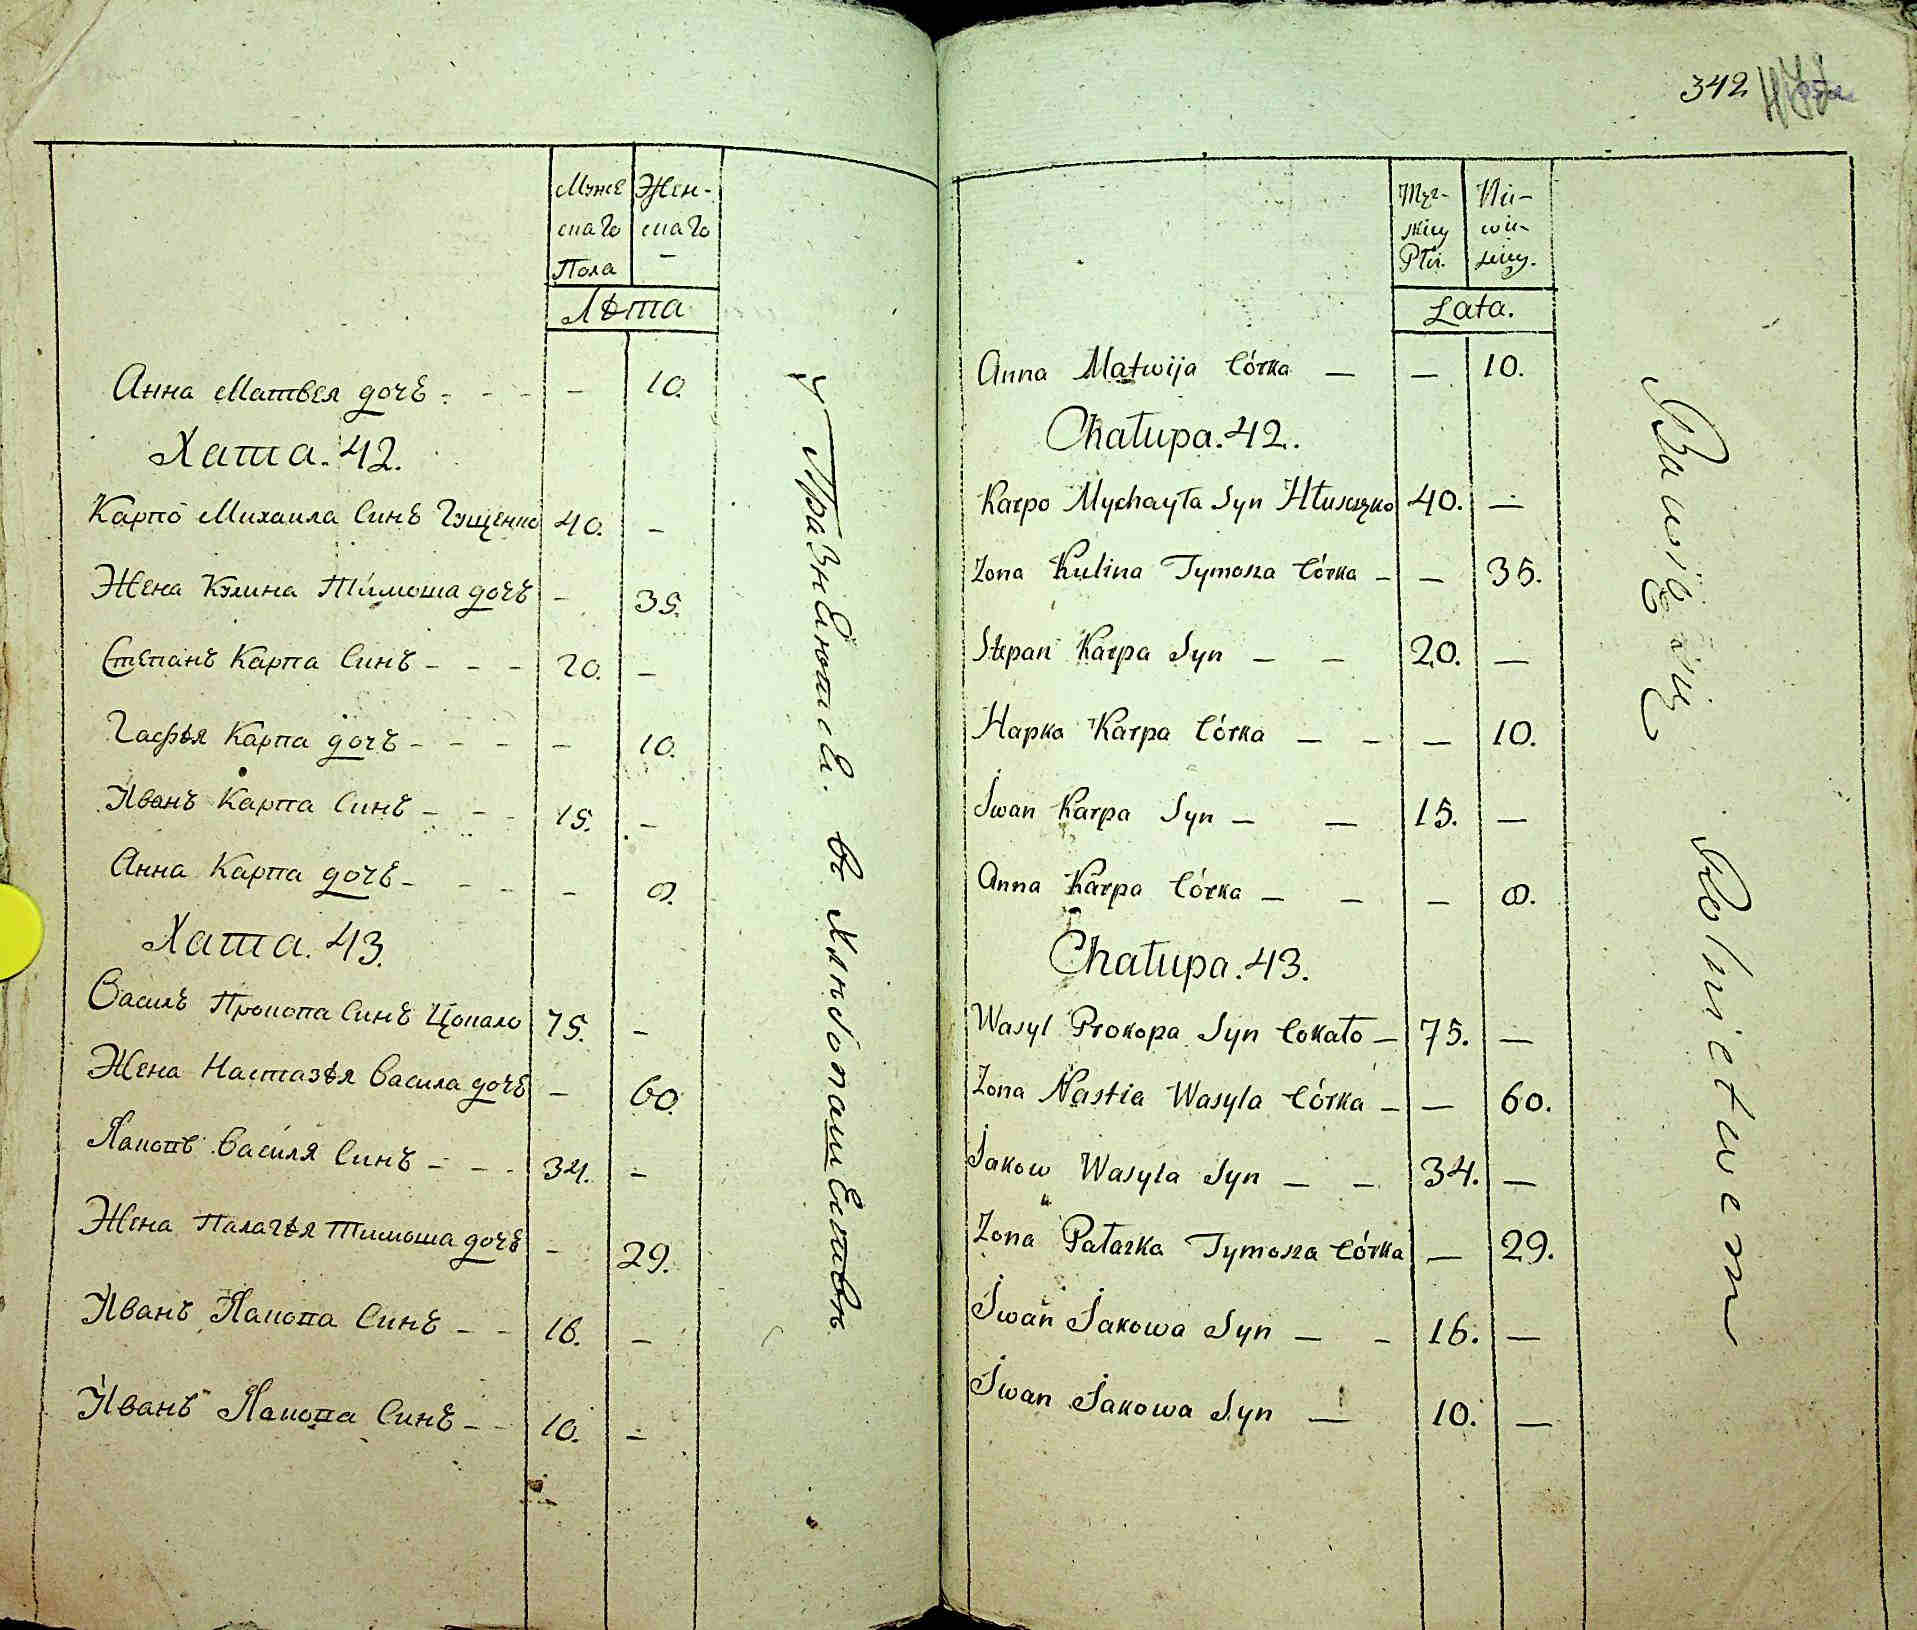 Муже Жен-
скаго скаго
Пола —
Лѣта
Анна Матвея дочъ - - - — 10.
Хата. 42.
Карпо Михаила Синъ Гущенко 40. —
Жена Кулина Тимоша дочъ — 35.
Степанъ Карпа Синъ - - - 20. —
Гафѣя Карпа дочъ - - - — 10.
Иванъ Карпа Синъ - - - 15. —
Анна Карпа дочъ - - - — 8.
Хата. 43.
Василъ Прокопа Синъ Цокало 75. —
Жена Настазѣя Васила дочъ — 60.
Василя Синъ - - - 34. —
Жена Палагѣя Тимоша дочъ — 29.
Иванъ Якопа Синъ - - 16. —
Иванъ Якопа Синъ - - 10. —
въ
342
Męz-
skiey
Płci.
Lata.
Anna Matwija Córka — — 10.
Chałupa. 42.
Karpo Mychayła Syn 40. —
Zona Kulina Tymosza Córka - — 35.
Stepan Karpa Syn — — 20. —
Hapka Karpa Córka — - — 10.
Iwan Karpa Syn — — 15. —
Anna Karpa Córka — — — 8.
Chałupa. 43.
Wasyl Prokopa Syn Cokało — 75. —
Zona Nastia Wasyla Córka — — 60.
Jakow Wasyla Syn — — 34. —
Zona Pałazka Tymosza Córka — 29.
Iwan Jakowa Syn — - 16. —
Iwan Jakowa Syn — 10. —
Bawią się
Rolnictwem